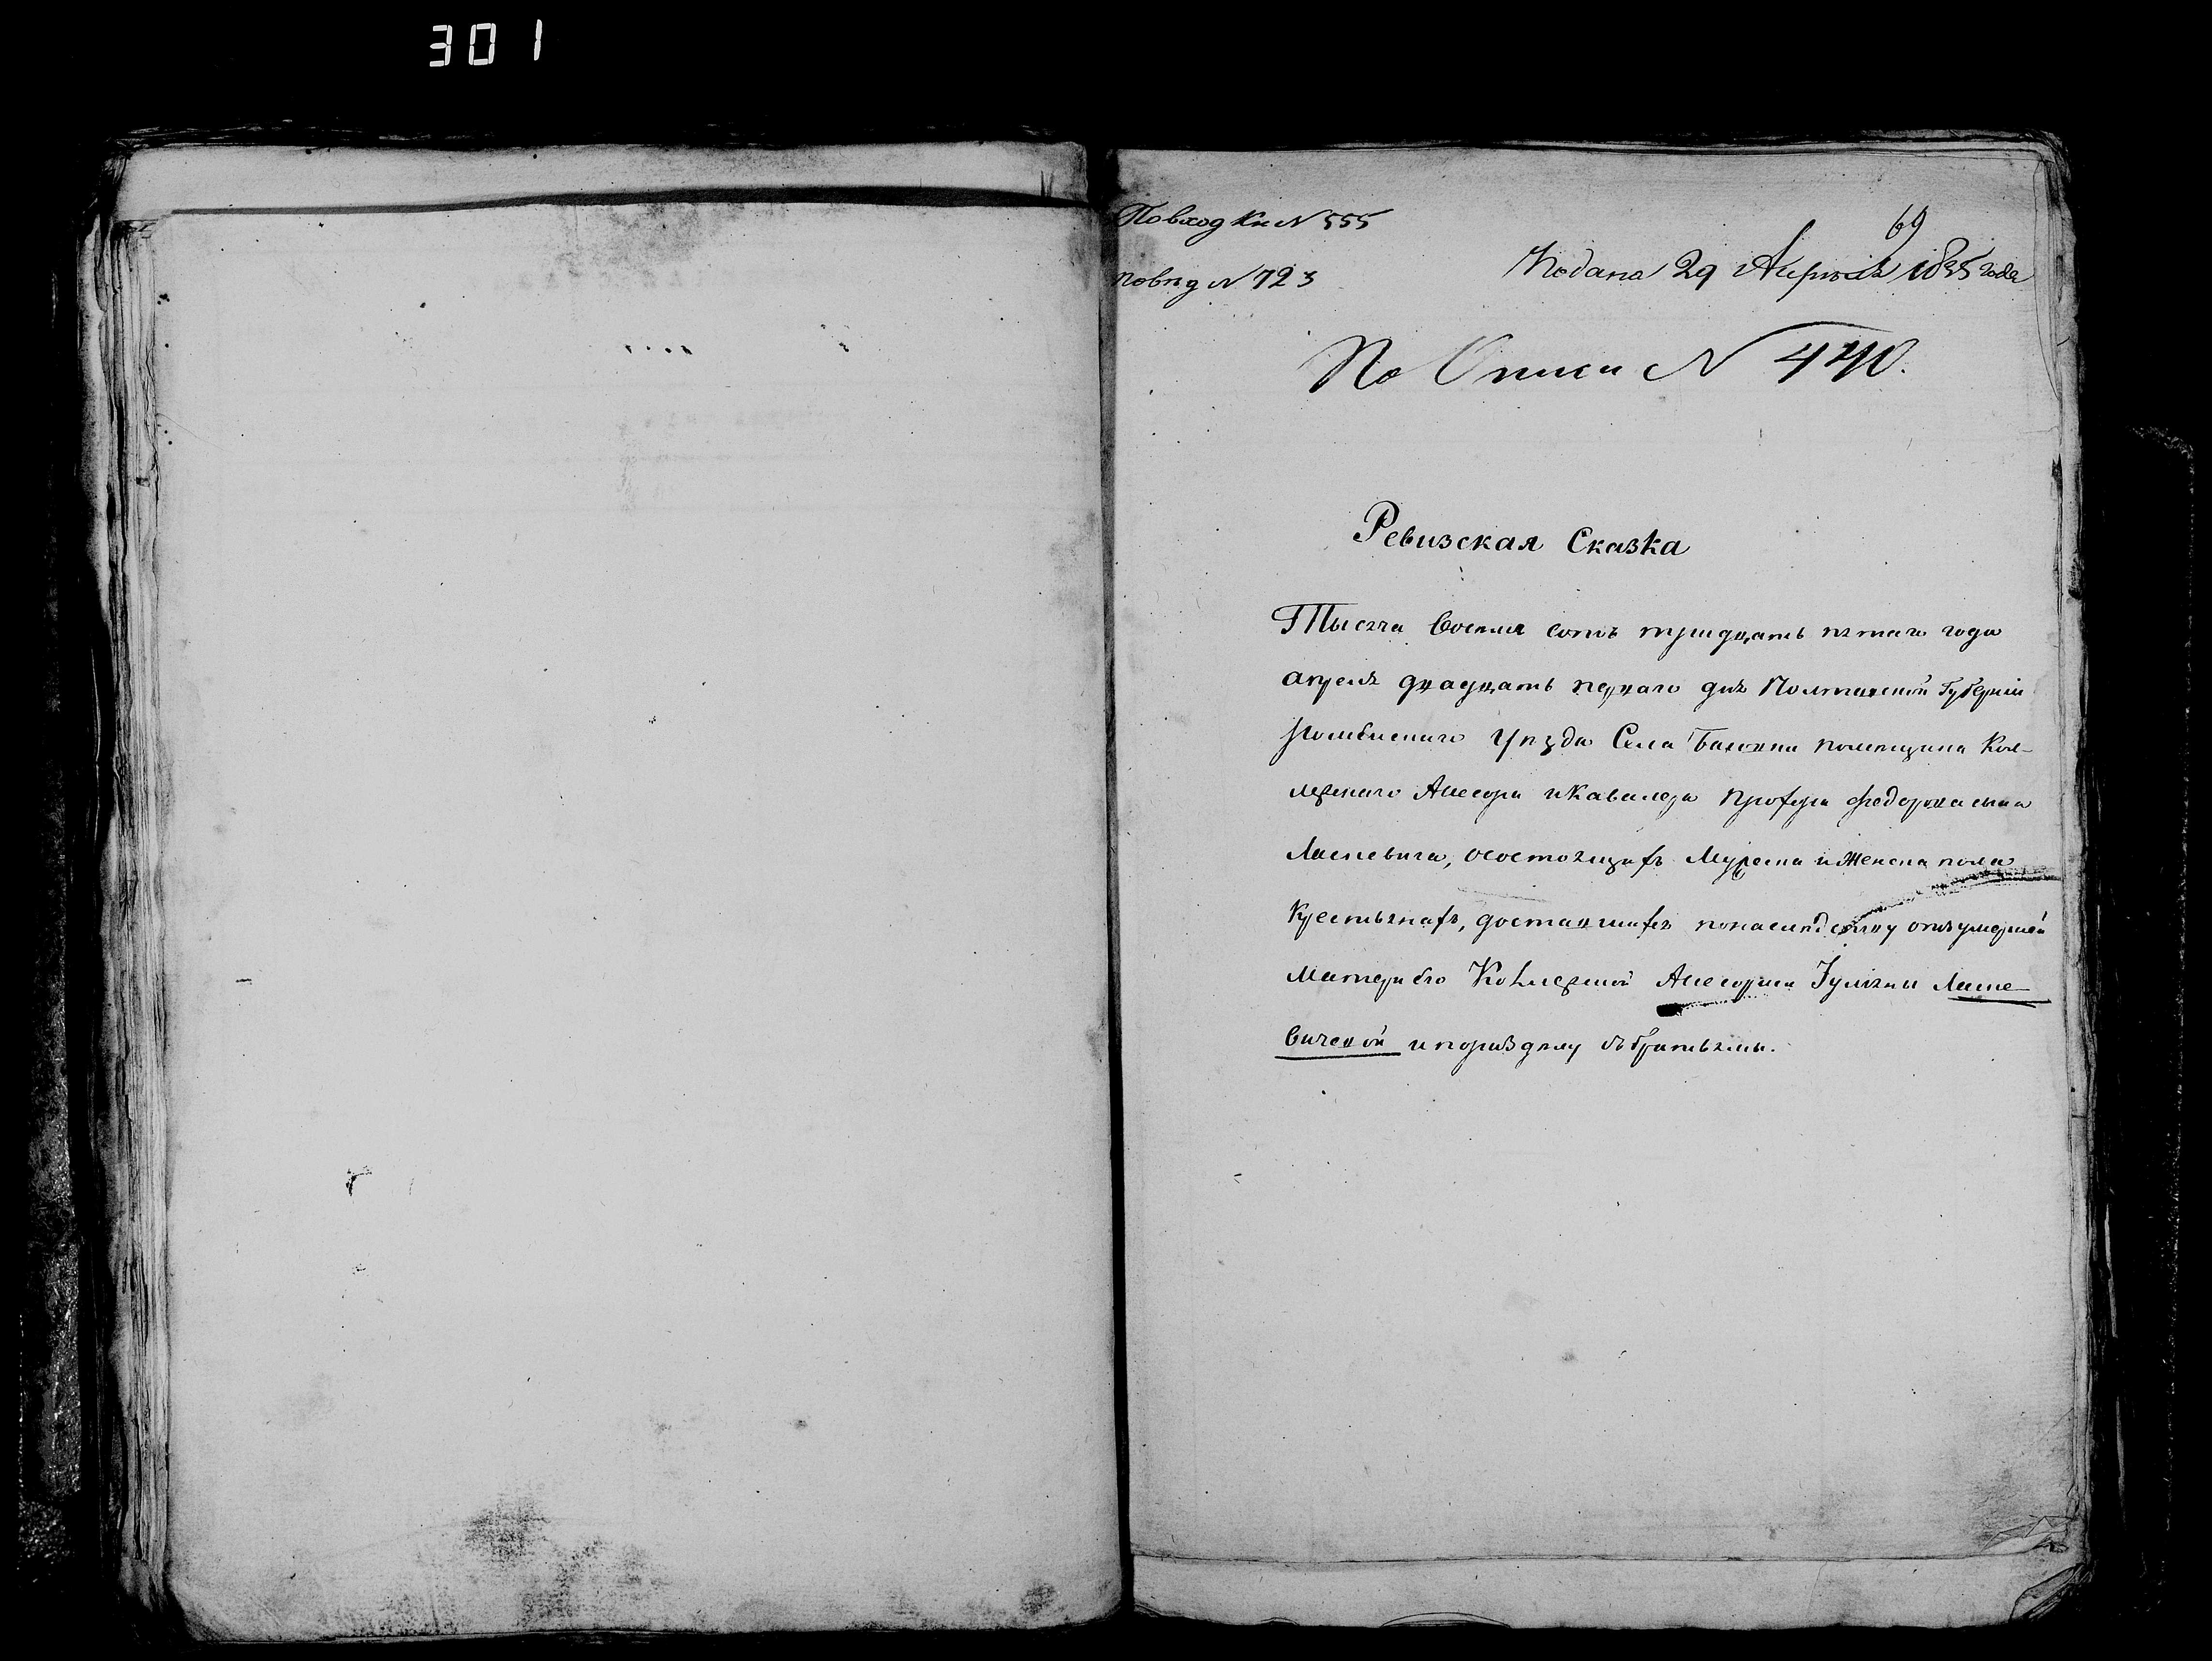 301
По входд Кн N 555
69
По вѣд N 723
Подана 29 Апрѣля 1835 года
По Описи N 440.
Ревизская Сказка
Тысяча восемь сотъ тридцать пятаго года
апреля двадцать перваго дня Полтавской Губерніи
Роменскаго Уѣзда Села помещика Кол-
лежскаго Ассесора и Кавалера Федорова сына
Лисневича, о состоящихъ Мужеска и Женска пола
Крестьянахъ, доставшихся по наследству отъ умершей
Матери его Коллежской Ассесорши Іулiяны
вичевой и по разделу съ братьями.